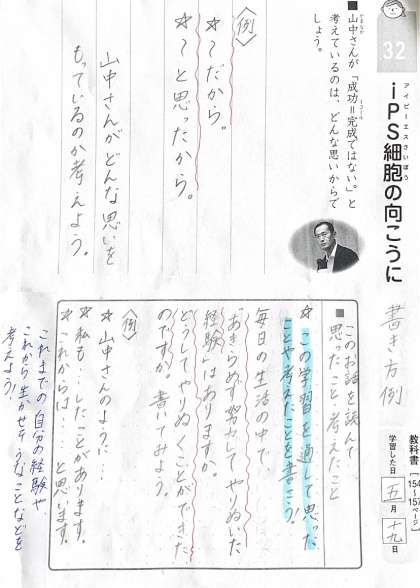 32
アイピーエスさいぼう
iPS細胞の向こうに
書き方例
教科書
154〜157ページ
学習した日
五月
十九日
■山中さんが「成功＝完成ではない。」と
考えているのは、どんな思いからで
しょう。
〈例〉
☆〜だから。
☆〜と思ったから。
山中さんがどんな思いを
もっているのか考えよう。
■このお話を読んで
思ったこと・考えたこと
☆この学習を通して思った
ことや考えたことを書こう！
毎日の生活の中で、
「あきらめず努力してやりぬいた
経験」はありますか。
どうしてやりぬくことができた
のですか。書いてみよう。
〈例〉
☆山中さんのように…
☆私も…したことがあります。
☆これからは…と思います。
これまでの自分の経験や、
これから生かせそうなことなどを
考えよう！